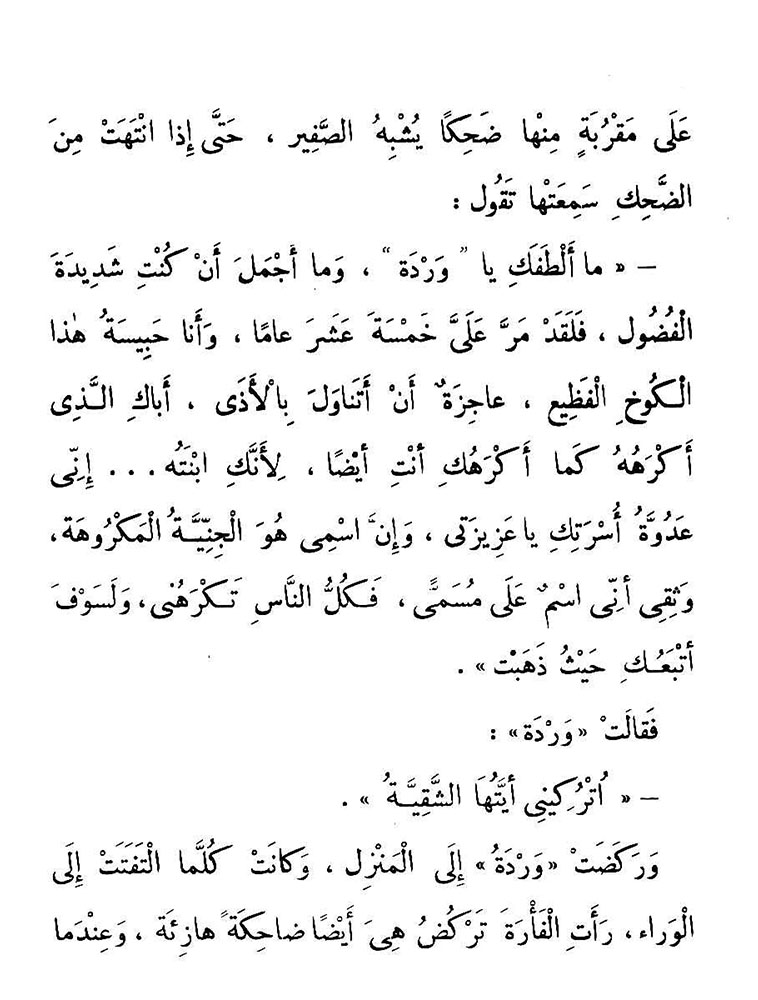 عَلَى مَقْرُبَةٍ مِنْها ضَحِكًا يُشْبِهُ الصَّفِير ، حَتَّى إِذا انْتَهَتْ مِنَ
الضَّحِكِ سَمِعَتْها تَقُول :
– « ما أَلْطَفَكِ يا " وَرْدَة " ، وَما أَجْمَلَ أَنْ كُنْتِ شَدِيدَةَ
الْفُضُول ، فَلَقَدْ مَرَّ عَلَيَّ خَمْسَةَ عَشَرَ عامًا ، وَأَنا حَبِيسَةُ هٰذا
الْكُوخِ الْفَظِيع ، عاجِزَةٌ أَنْ أَتَناوَلَ بِالْأَذَى ، أَباكِ الَّذِى
أَكْرَهُهُ كَما أَكْرَهُكِ أنْتِ أيْضًا ، لِأَنَّكِ ابْنَتُه ... إِنِّى
عَدُوَّةُ أُسْرَتِكِ يا عَزِيزَتى ، وَإِنَّ اسْمِى هُوَ الْجِنِّيَّةُ الْمَكْرُوهَة ،
وَثِقِى أنِّى اسْمٌ عَلَى مُسَمًّى ، فَكُلُّ النَّاسِ تَكْرَهُنى ، وَلَسَوْفَ
أتْبَعُكِ حَيْثُ ذَهَبْت » .
فَقالَتْ «وَرْدَة» :
– « اُتْرُكِينِى أيَّتُها الشَّقِيَّةُ » .
وَرَكَضَتْ «وَرْدَةُ» إِلَى الْمَنْزِل ، وَكانَتْ كُلَّما الْتَفَتَتْ إِلَى
الْوَراء ، رَأَتِ الْفَأْرَةَ تَرْكُضُ هِىَ أَيْضًا ضاحِكَةً هازِئَة ، وَعِنْدَما